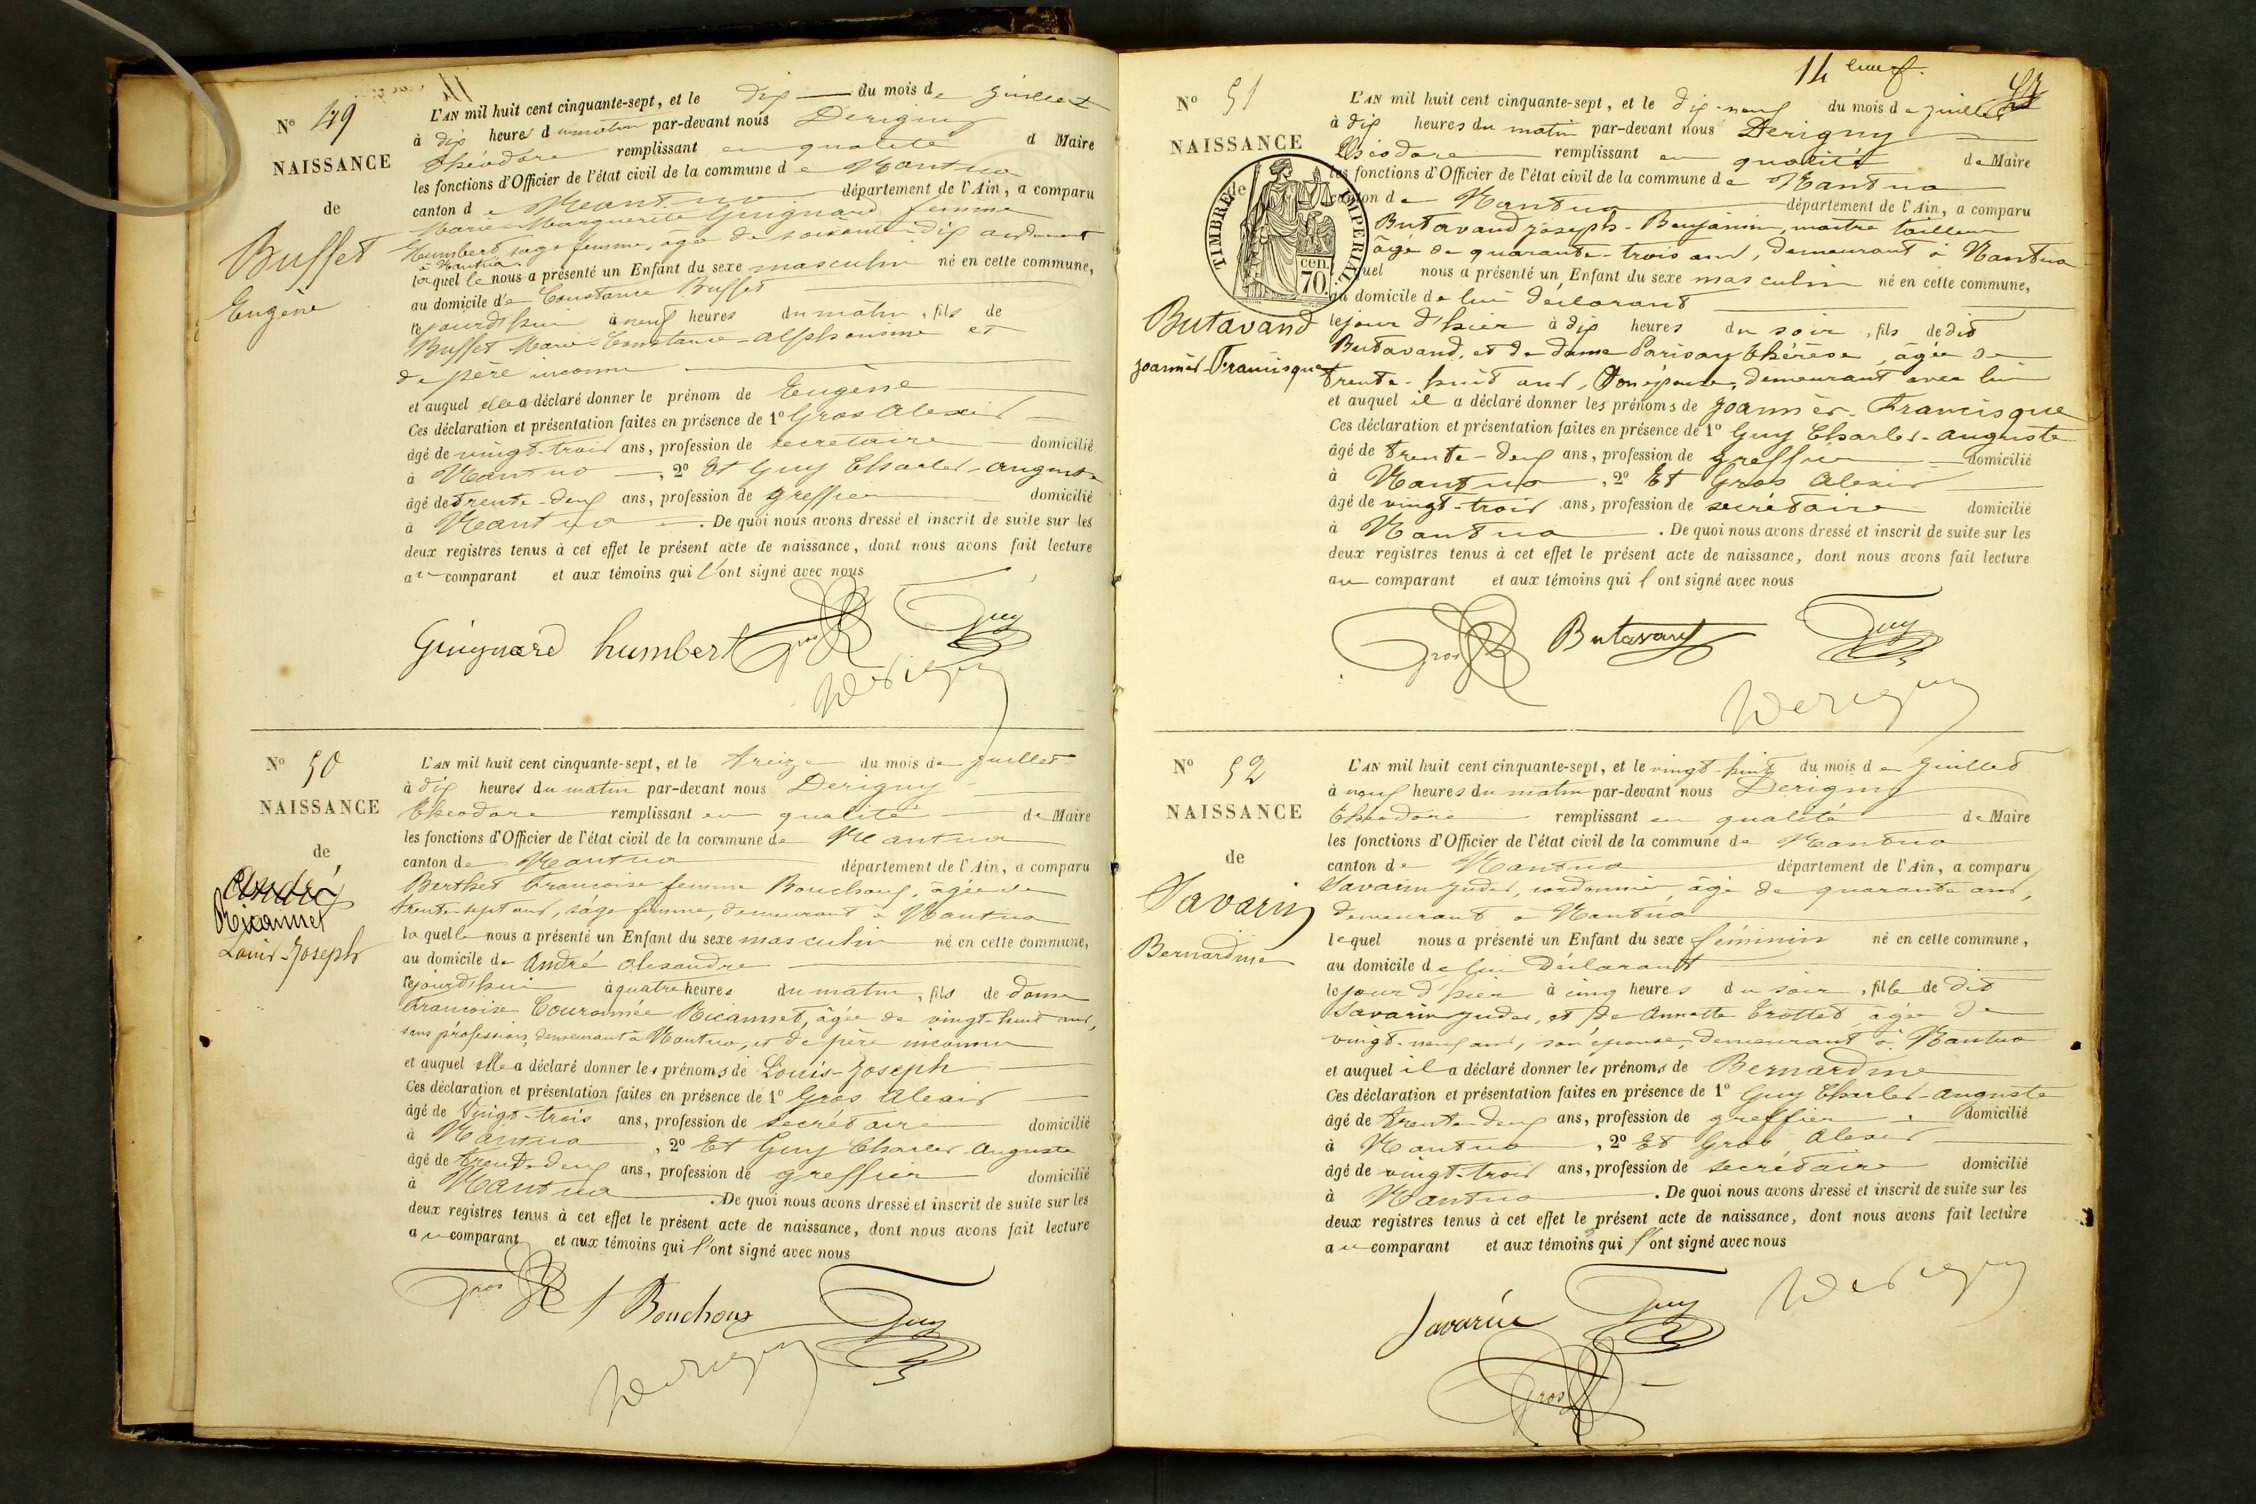 N° 49
NAISSANCE
de
Buffet
Eugène
L'AN mil huit cent cinquante-sept, et le dix du mois de juillet
à dix heures du matin par-devant nous Derigny
Théodore remplissant en qualité d Maire
les fonctions d'Officier de l'état civil de la commune de Nantua
canton de Nantua département de l'Ain, a comparu
Marie-Marguerite Guignard femme
Humbert sage femme, âgée de soixante-dix ans demeurant
à Nantua
laquelle nous a présenté un Enfant du sexe masculin né en cette commune,
au domicile de Constance Buffet
cejourd'hui à neuf heures du matin, fils de
Buffet Marie-Constance-Alphonsine et
de père inconnu
et auquel elle a déclaré donner le prénom de Eugène
Ces déclaration et présentation faites en présence de 1° Gros Alexis
âgé de vingt-trois ans, profession de secrétaire domicilié
à Nantua, 2° Et Guy Charles-Auguste
âgé de trente-deux ans, profession de greffier domicilié
à Nantua. De quoi nous avons dressé et inscrit de suite sur les
deux registres tenus à cet effet le présent acte de naissance, dont nous avons fait lecture
au comparant et aux témoins qui l'ont signé avec nous
Guignard humbert Gros Guy
Derigny
N° 50
NAISSANCE
de
André
Ricannet
Louis-Joseph
L'AN mil huit cent cinquante-sept, et le treize du mois de juillet
à dix heures du matin par-devant nous Derigny
Théodore remplissant en qualité de Maire
les fonctions d'Officier de l'état civil de la commune de Nantua
canton de Nantua département de l'Ain, a comparu
Berthet Francoise femme Bouchoux, âgée de
trente-sept ans, sage femme, demeurant à Nantua
laquelle nous a présenté un Enfant du sexe masculin né en cette commune,
au domicile de André Alexandre
cejourd'hui à quatre heures du matin, fils de dame
Francoise Couronnée Ricannet, âgée de vingt-huit ans,
sans profession, demeurant à Nantua, et de père inconnu
et auquel elle a déclaré donner les prénoms de Louis-Joseph
Ces déclaration et présentation faites en présence de 1° Gros Alexis
âgé de vingt-trois ans, profession de secrétaire domicilié
à Nantua, 2° Et Guy Charles Auguste
âgé de trente-deux ans, profession de greffier domicilié
à Nantua. De quoi nous avons dressé et inscrit de suite sur les
deux registres tenus à cet effet le présent acte de naissance, dont nous avons fait lecture
au comparant et aux témoins qui l'ont signé avec nous
Gros f Bouchoux Guy
Derigny
14 eme f.
N° 51
NAISSANCE
de
TIMBRE IMPERIAL.
70 cen.
Butavand
Joannès-Francisque
L'AN mil huit cent cinquante-sept, et le dix-neuf du mois de juillet
à dix heures du matin par-devant nous Derigny
Théodore remplissant en qualité de Maire
les fonctions d'Officier de l'état civil de la commune de Nantua
canton de Nantua département de l'Ain, a comparu
Butavand Joseph-Benjamin, maitre tailleur
âgé de quarante-trois ans, demeurant à Nantua
lequel nous a présenté un Enfant du sexe masculin né en cette commune,
au domicile de lui déclarant
le jour d'hier à dix heures du soir, fils de dit
Butavand, et de dame Parisay Thérèse, âgée de
trente-huit ans, son épouse, demeurant avec lui
et auquel il a déclaré donner les prénoms de Joannès-Francisque
Ces déclaration et présentation faites en présence de 1° Guy Charles-Auguste
âgé de trente-deux ans, profession de greffier domicilié
à Nantua, 2° Et Gros Alexis
âgé de vingt-trois ans, profession de secrétaire domicilié
à Nantua. De quoi nous avons dressé et inscrit de suite sur les
deux registres tenus à cet effet le présent acte de naissance, dont nous avons fait lecture
au comparant et aux témoins qui l'ont signé avec nous
Gros Butavand Guy
Derigny
N° 52
NAISSANCE
de
Savarin
Bernardine
L'AN mil huit cent cinquante-sept, et le vingt-huit du mois de juillet
à neuf heures du matin par-devant nous Derigny
Théodore remplissant en qualité de Maire
les fonctions d'Officier de l'état civil de la commune de Nantua
canton de Nantua département de l'Ain, a comparu
Savarin Judes, cordonnier, âgé de quarante ans,
demeurant à Nantua
lequel nous a présenté un Enfant du sexe féminin né en cette commune,
au domicile de lui Déclarant
le jour d'hier à cinq heures du soir, fille de dit
Savarin Judes, et de Annette Trottet âgée de
vingt-neuf ans, son épouse, demeurant à Nantua
et auquel il a déclaré donner les prénoms de Bernardine
Ces déclaration et présentation faites en présence de 1° Guy Charles-Auguste
âgé de trente-deux ans, profession de greffier domicilié
à Nantua, 2° Et Gros Alexis
âgé de vingt-trois ans, profession de secrétaire domicilié
à Nantua. De quoi nous avons dressé et inscrit de suite sur les
deux registres tenus à cet effet le présent acte de naissance, dont nous avons fait lecture
au comparant et aux témoins qui l'ont signé avec nous
Savarin Guy Derigny
Gros